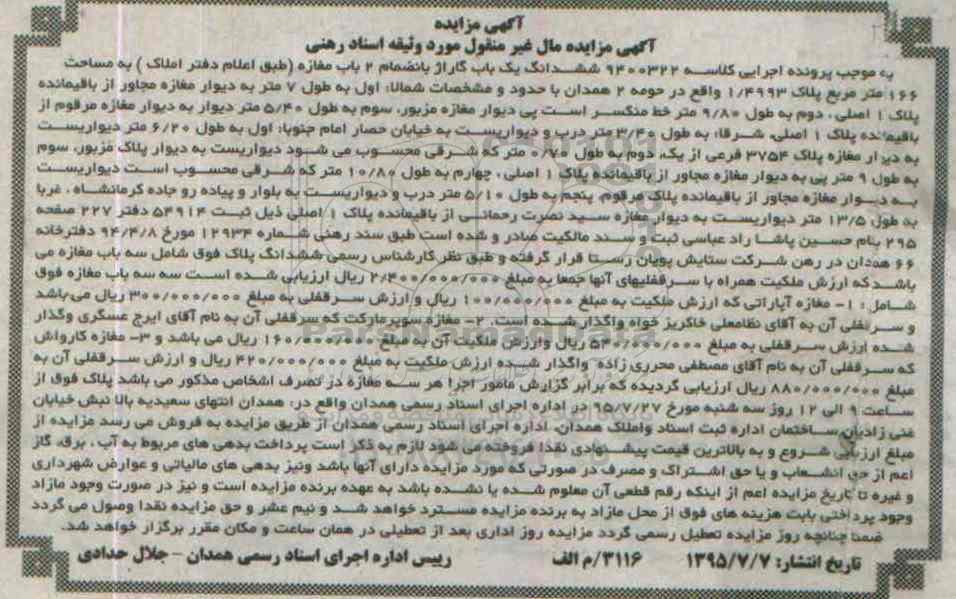 آگهی مزایده
آگهی مزایده مال غیر منقول مورد وثیقه اسناد رهنی
به موجب پرونده اجرایی کلاسه ۹۴۰۰۳۲۲ ششدانگ یک باب گاراژ بانضمام ۲ باب مغازه (طبق اعلام دفتر املاک) به مساحت
۱۶۶ متر مربع پلاک ۱/۴۹۹۳ واقع در حومه ۲ همدان با حدود و مشخصات شمالا: اول به طول ۷ متر به دیوار مغازه مجاور از باقیمانده
پلاک ۱ اصلی، دوم به طول ۹/۸۰ متر خط منکسر است پی دیوار مغازه مزبور، سوم به طول ۵/۴۰ متر دیوار به دیوار مغازه مرقوم از
باقیمانده پلاک ۱ اصلی، شرقا: به طول ۳/۴۰ متر درب و دیواریست به خیابان حصار امام جنوبا: اول به طول ۶/۲۰ متر دیواریست
به دیوار مغازه پلاک ۳۷۵۴ فرعی از یک، دوم به طول ۰/۷۰ متر که شرقی محسوب می شود دیواریست به دیوار پلاک مزبور، سوم
به طول ۹ متر پی به دیوار مغازه مجاور از باقیمانده پلاک ۱ اصلی، چهارم به طول ۱۰/۸۰ متر که شرقی محسوب است دیواریست
به دیوار مغازه مجاور از باقیمانده پلاک مرقوم، پنجم به طول ۵/۱۰ متر درب و دیواریست به بلوار و پیاده رو جاده کرمانشاه، غربا
به طول ۱۳/۵ متر دیواریست به دیوار مغازه سید نصرت رحمانی از باقیمانده پلاک ۱ اصلی ذیل ثبت ۵۴۹۱۴ دفتر ۲۲۷ صفحه
۲۹۵ بنام حسین پاشا راد عباسی ثبت و سند مالکیت صادر و شده است طبق سند رهنی شماره ۱۲۹۳۴ مورخ ۹۴/۴/۸ دفترخانه
۶۶ همدان در رهن شرکت ستایش پویان رستا قرار گرفته و طبق نظر کارشناس رسمی ششدانگ پلاک فوق شامل سه باب مغازه می
باشد که ارزش ملکیت همراه با سرقفلیهای آنها جمعا به مبلغ ۲/۴۰۰/۰۰۰/۰۰۰ ریال ارزیابی شده است سه باب مغازه فوق
شامل: ۱- مغازه آپاراتی که ارزش ملکیت به مبلغ ۱۰۰/۰۰۰/۰۰۰ ریال و ارزش سرقفلی به مبلغ ۳۰۰/۰۰۰/۰۰۰ ریال می باشد
و سرقفلی آن به آقای نظامعلی خاکریز خواه واگذار شده است. ۲- مغازه سوپرمارکت که سرقفلی آن به نام آقای ایرج عسگری وگذار
شده ارزش سرقفلی به مبلغ ۵۴۰/۰۰۰/۰۰۰ ریال وارزش ملکیت آن به مبلغ ۱۶۰/۰۰۰/۰۰۰ ریال می باشد و ۳- مغازه کارواش
که سرقفلی آن به نام آقای مصطفی محرری زاده واگذار شده ارزش ملکیت به مبلغ ۴۲۰/۰۰۰/۰۰۰ ریال و ارزش سرقفلی آن به
مبلغ ۸۸۰/۰۰۰/۰۰۰ ریال ارزیابی گردیده که برابر گزارش مامور اجرا هر سه مغازه در تصرف اشخاص مذکور می باشد پلاک فوق از
ساعت ۹ الی ۱۲ روز سه شنبه مورخ ۹۵/۷/۲۷ در اداره اجرای اسناد رسمی همدان واقع در: همدان انتهای سعیدیه بالا نبش خیابان
غنی زادیان ساختمان اداره ثبت اسناد واملاک همدان اداره اجرای اسناد رسمی همدان از طریق مزایده به فروش می رسد مزایده از
مبلغ ارزیابی شروع و به بالاترین قیمت پیشنهادی نقدا فروخته می شود لازم به ذکر است پرداخت بدهی های مربوط به آب، برق، گاز
اعم از حق انشعاب و یا حق اشتراک و مصرف در صورتی که مورد مزایده دارای آنها باشد ونیز بدهی های مالیاتی و عوارض شهرداری
و غیره تا تاریخ مزایده اعم از اینکه رقم قطعی آن معلوم شده یا نشده باشد به عهده برنده مزایده است و نیز در صورت وجود مازاد
وجود پرداختی بابت هزینه های فوق از محل مازاد به برنده مزایده مسترد خواهد شد و نیم عشر و حق مزایده نقدا وصول می گردد
ضمنا چنانچه روز مزایده تعطیل رسمی گردد مزایده روز اداری بعد از تعطیلی در همان ساعت و مکان مقرر برگزار خواهد شد.
تاریخ انتشار: ۱۳۹۵/۷/۷ ۳۱۱۶/م الف رییس اداره اجرای اسناد رسمی همدان - جلال حدادی